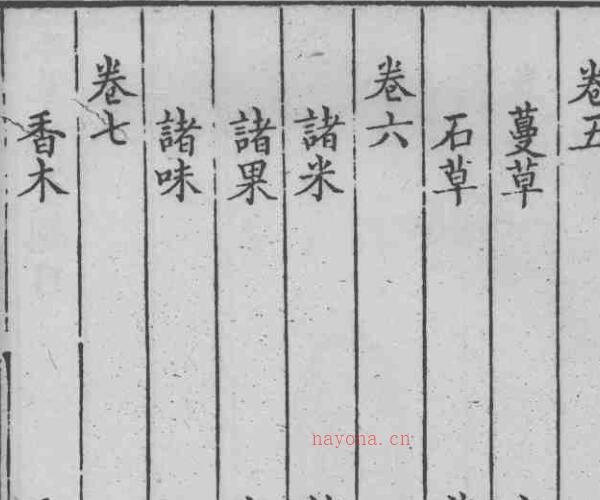 卷五
蔓草
石草
卷六
諸米
諸果
諸味
卷七
香木
hayona.cn